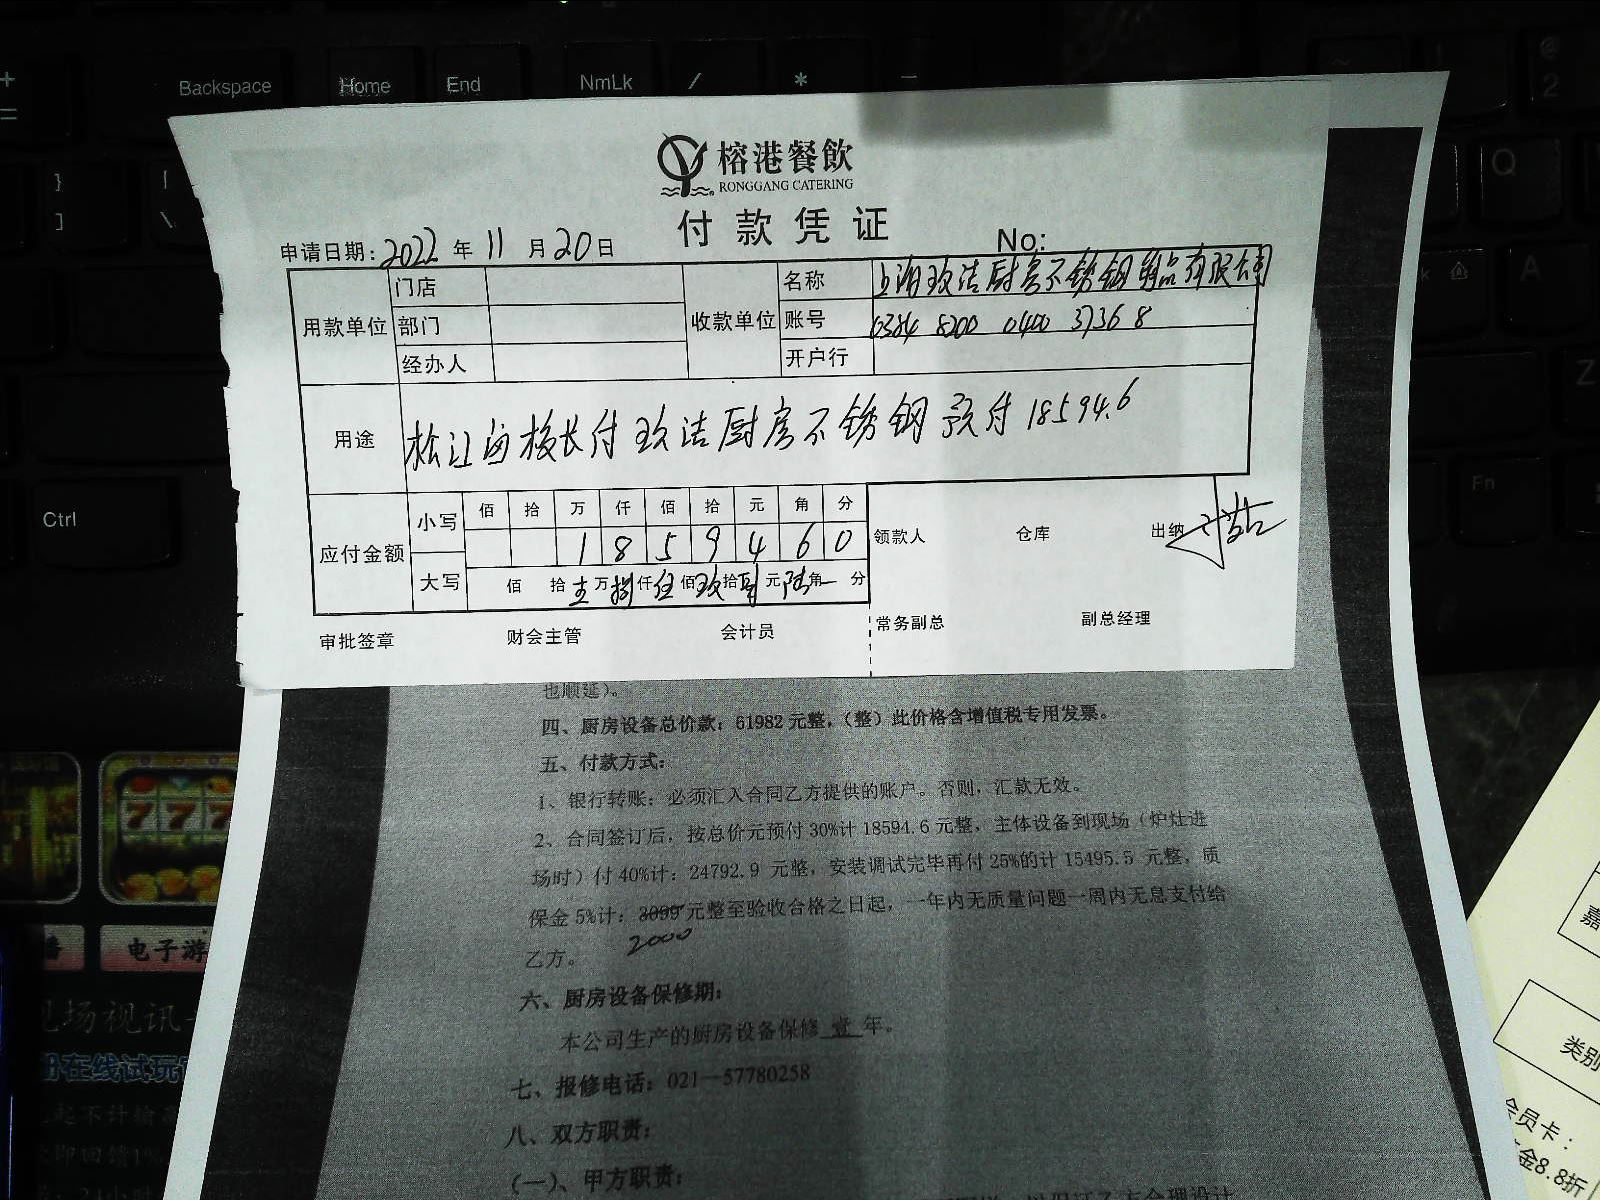 Backspace Home End NmLk / * −
榕港餐飲
RONGGANG CATERING
付款凭证
申请日期: 2022 年 11 月 20 日 No:
用款单位 门店 收款单位 名称 上海玫洁厨房不锈钢制品有限公司
部门 账号 0384 8200 0400 37368
经办人 开户行
用途 松江 付 玫洁厨房不锈钢 预付 18594.6
应付金额 小写 佰 拾 万 仟 佰 拾 元 角 分
1 8 5 9 4 6 0
大写 佰 拾 壹 万 捌 仟 伍 佰 玖 拾 肆 元 陆 角 分
领款人 仓库 出纳
审批签章 财会主管 会计员 常务副总 副总经理
也顺延)。
四、厨房设备总价款：61982 元整，(整) 此价格含增值税专用发票。
五、付款方式：
1、银行转账：必须汇入合同乙方提供的账户。否则，汇款无效。
2、合同签订后，按总价元预付 30%计 18594.6 元整，主体设备到现场（炉灶进
场时）付 40%计：24792.9 元整，安装调试完毕再付 25%的计 15495.5 元整，质
保金 5%计：3099 元整至验收合格之日起，一年内无质量问题一周内无息支付给
2000
乙方。
六、厨房设备保修期：
本公司生产的厨房设备保修 壹 年。
七、报修电话：021—57780258
八、双方职责：
(一)、甲方职责：
Ctrl
Fn
Q
A
Z
@
2
电子游
现场视讯
册在线试玩
类别
会员卡：
金8.8折